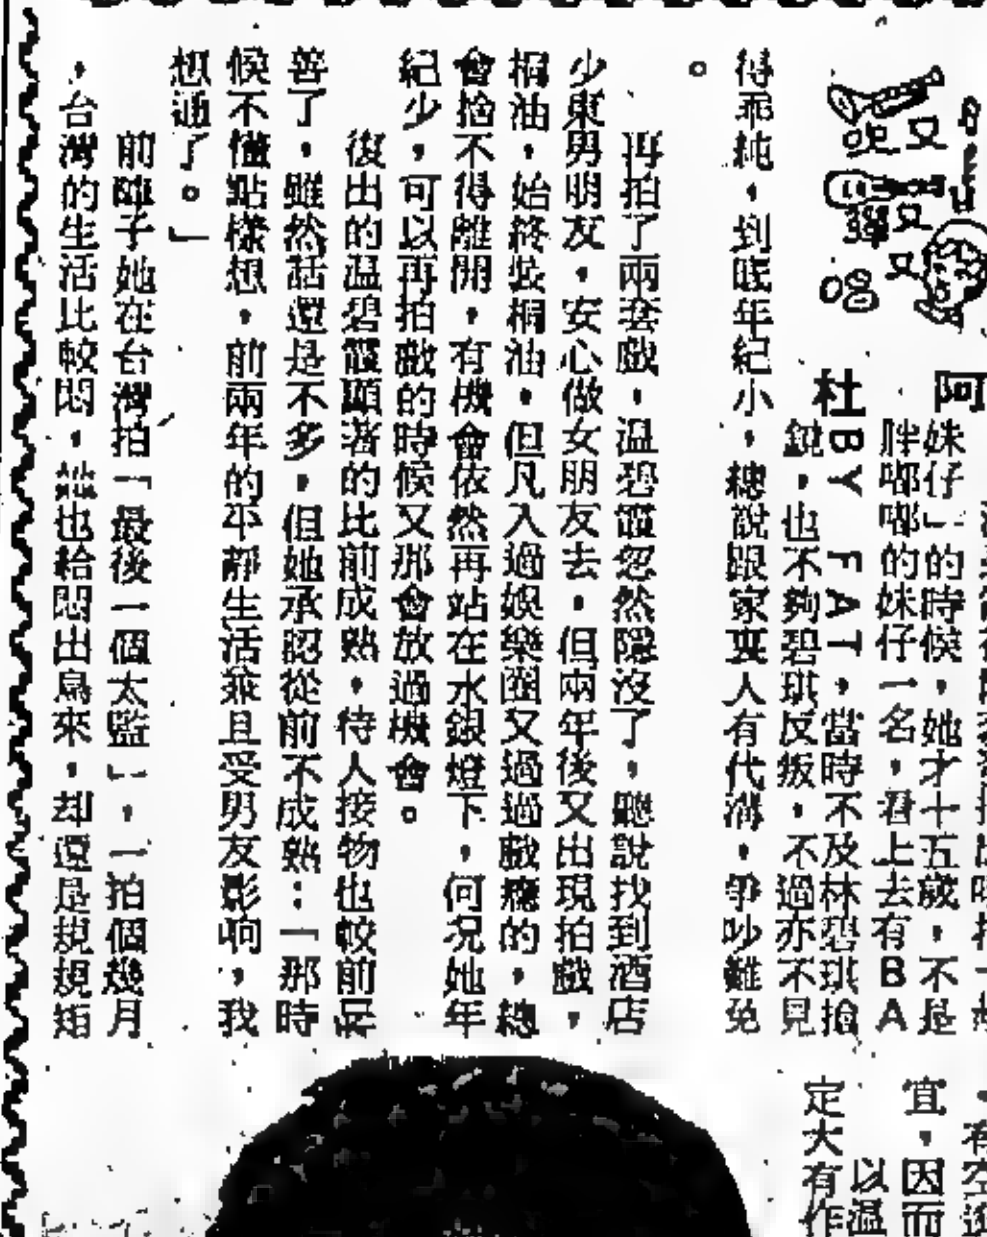 吹又
彈又
唱又
阿
杜
妹仔」的時候，她才十五歲，不是
胖嘟嘟的妹仔一名，看上去有ＢＡ
ＢＹ　ＦＡＴ，當時不及林碧琪搶
鏡，也不夠碧琪反叛，不過亦不見
得乖純，到底年紀小，總說跟家裏人有代溝，爭吵難免
。
再拍了兩套戲，温碧霞忽然隱沒了，聽說找到酒店
少東男朋友，安心做女朋友去，但兩年後又出現拍戲，
桐油，始終裝桐油，但凡入過娛樂圈又過過戲癮的，總
會捨不得離開，有機會依然再站在水銀燈下，何况她年
紀少，可以再拍戲的時候又那會放過機會。
復出的温碧霞顯著的比前成熟，待人接物也較前
善了，雖然話還是不多，但她承認從前不成熟：「那時
候不懂點樣想，前兩年的平靜生活兼且受男友影响，我
想通了。」
前陣子她在台灣拍「最後一個太監」，一拍個幾月
，台灣的生活比較悶，她也給悶出鳥來，却還是規規矩
有空
宜，因而
以温
定大有作